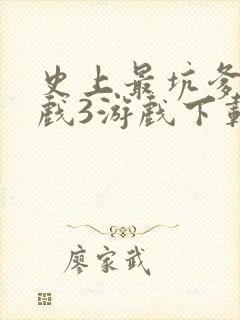 史上最坑爹
戏3游戏下載
廖家武